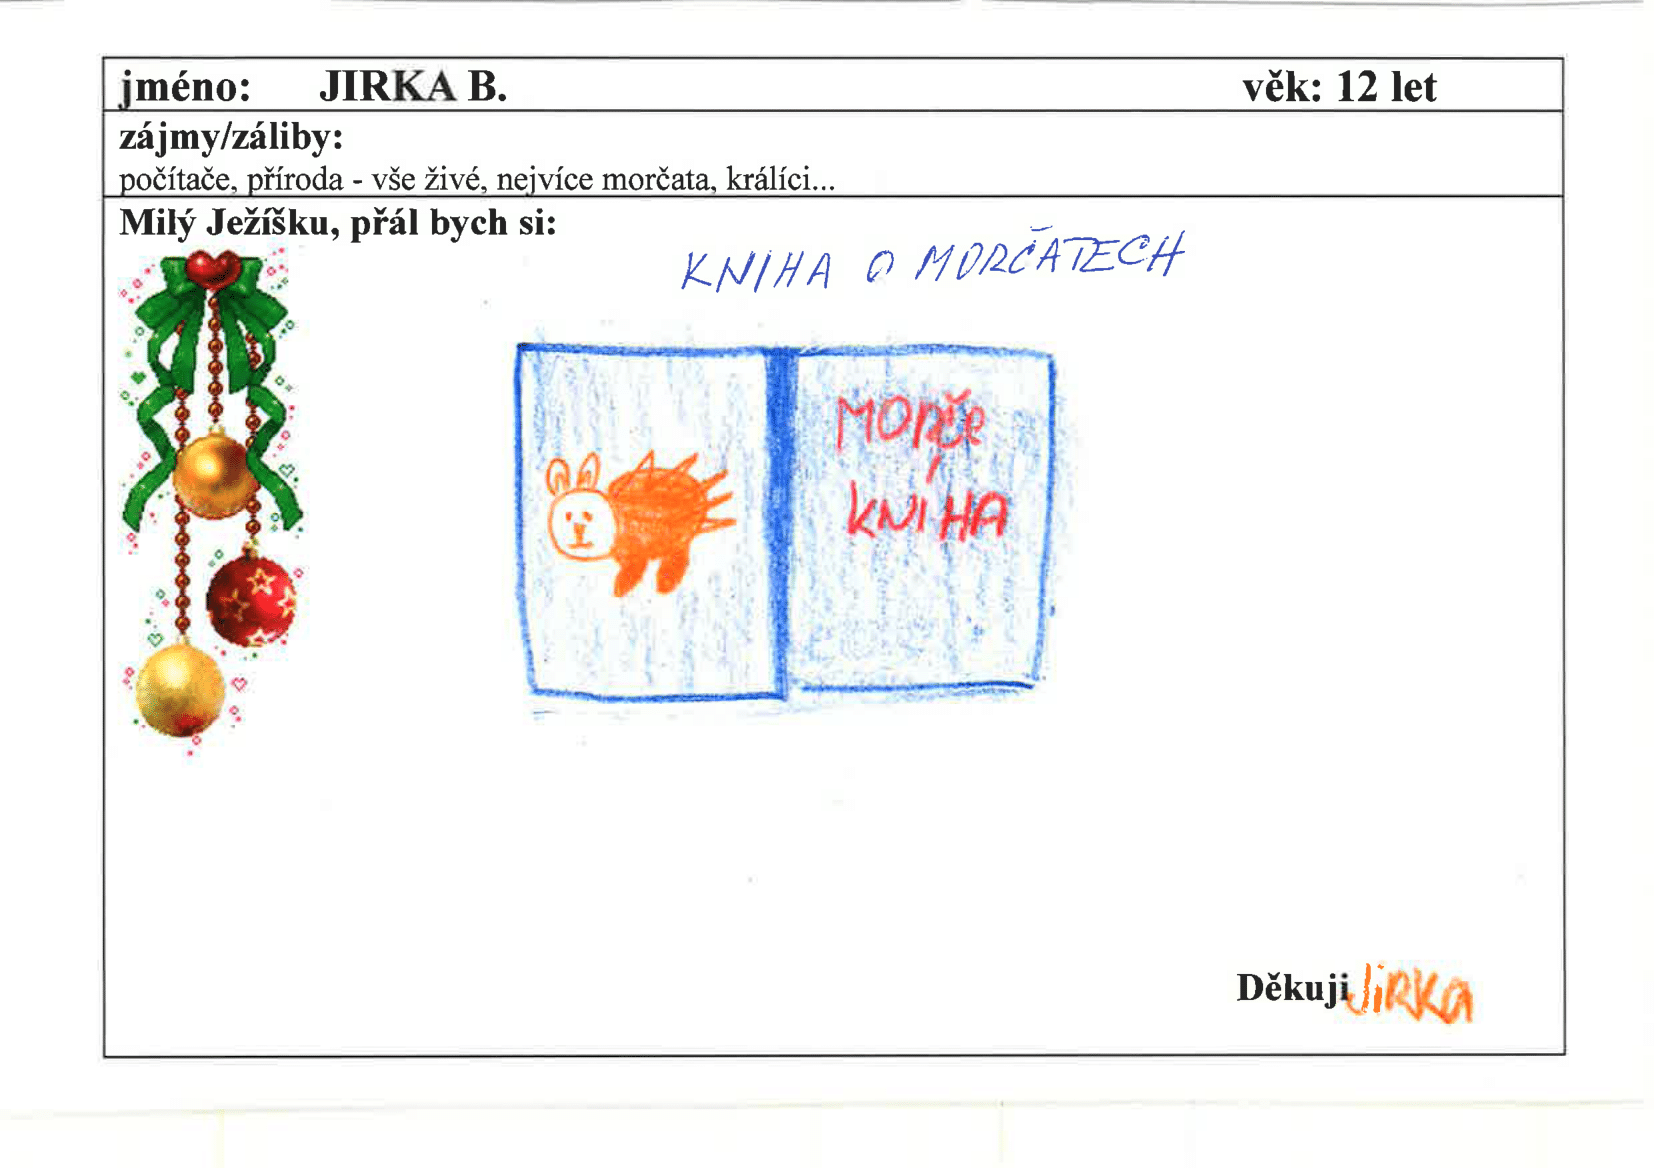 jméno: JIRKA B. věk: 12 let
zájmy/záliby:
počítače, příroda - vše živé, nejvíce morčata, králíci...
Milý Ježíšku, přál bych si:
KNIHA O MORČATECH
MORče
KNIHA
Děkuji JiRKA